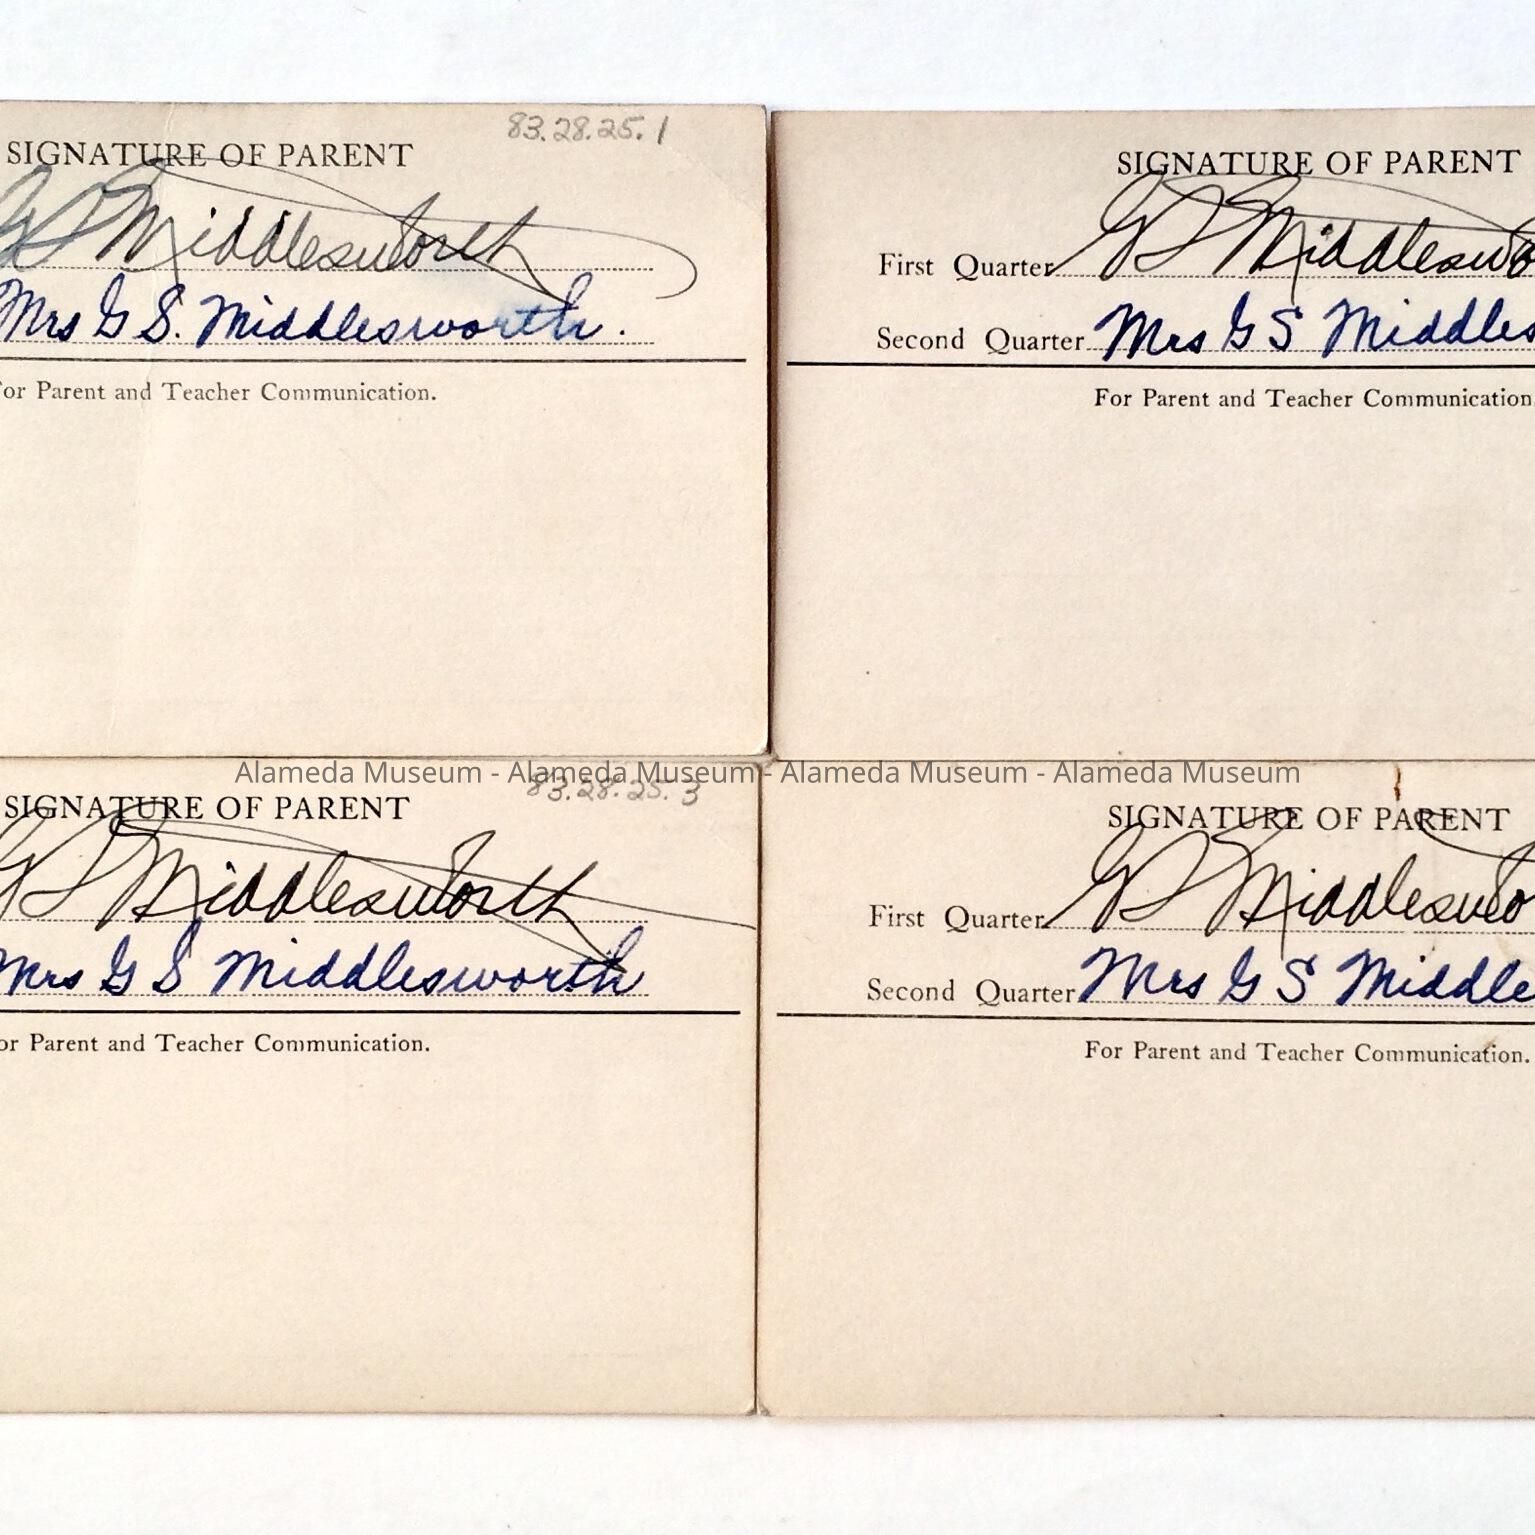 83.28.25.1
SIGNATURE OF PARENT
G S Middlesworth
Mrs G S. Middlesworth.
For Parent and Teacher Communication.
SIGNATURE OF PARENT
First Quarter G S Middleswo
Second Quarter Mrs G S Middles
For Parent and Teacher Communication.
Alameda Museum - Alameda Museum - Alameda Museum - Alameda Museum
83.28.25.3
SIGNATURE OF PARENT
G S Middlesworth
Mrs G S Middlesworth
or Parent and Teacher Communication.
SIGNATURE OF PARENT
First Quarter G S Middleswo
Second Quarter Mrs G S Middle
For Parent and Teacher Communication.